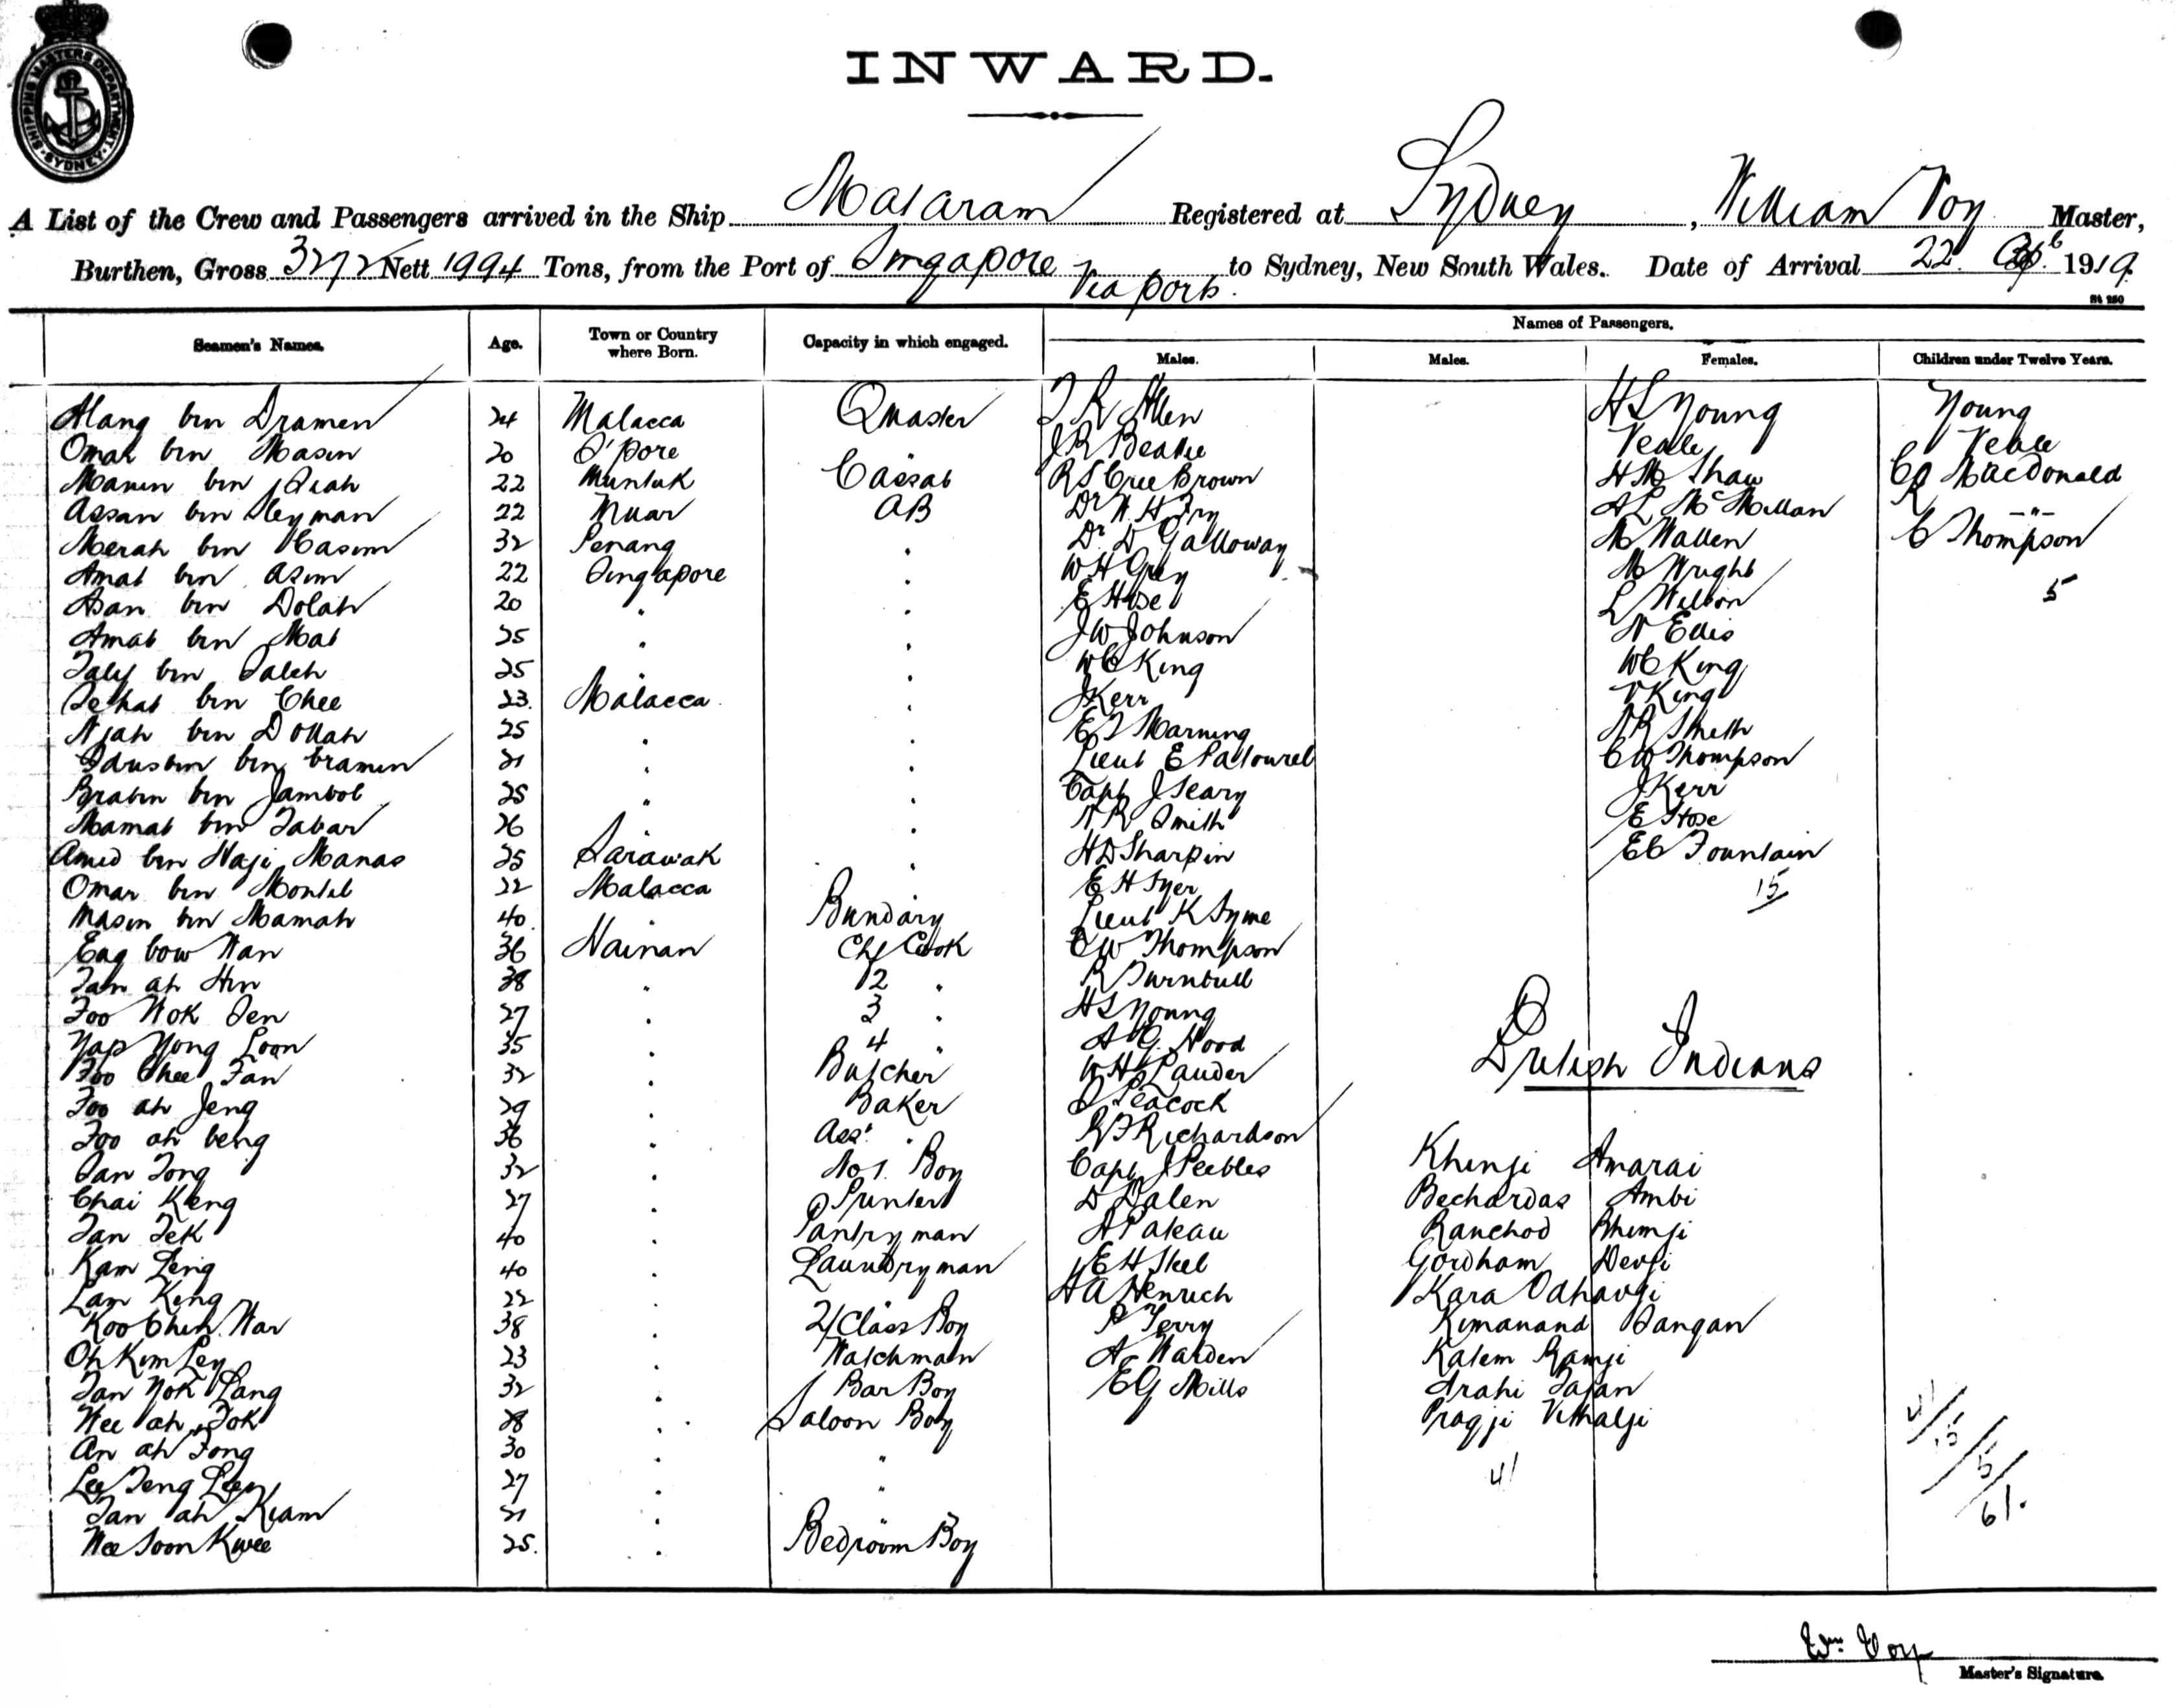 SHIPPING MASTERS DEPARTMENT
SYDNEY
INWARD.
A List of the Crew and Passengers arrived in the Ship Mataram Registered at Sydney, William Voy Master,
Burthen, Gross 3272 Nett 1994 Tons, from the Port of Singapore to Sydney, New South Wales. Date of Arrival 22 1919.
Via ports.
St 250
Seamen's Names. Age. Town or Country where Born. Capacity in which engaged. Names of Passengers.
Males. Males. Females. Children under Twelve Years.
Alang bin Dramen 24 Malacca Qmaster Allen H S Young Young
Omar bin Masin 20 S'pore J R Beattie Veale Veale
bin 22 Muntuk Cassab R S Cree Brown H M Shaw MacDonald
Assan bin Sleyman 22 Muar AB Dr W. H Fry A L McMillan R -"-
Merah bin Casim 32 Penang . Dr D Galloway M Wallen C Thompson
Amat bin Asim 22 Singapore . W H Grey M Wright 5
Asan bin Dolah 20 " . E Hose L Wilson
Amat bin Mat 25 . . J W Johnson N Ellis
bin Saleh 25 . . W C King W C King
bin Chee 23. Malacca . J Kerr V King
bin Dollah 25 . . E J Marning N R Smith
bin 21 . . Lieut E Patourel C W Thompson
bin 25 " . Capt J Seary J Kerr
Mamat bin Jabar 26 . . N R Smith E Hose
Amid bin Haji Manas 25 Sarawak . H D Sharpin E C Fountain
Omar bin 22 Malacca . E H Syer 15
Masin bin Mamah 40. . Bundary Lieut K Syme
Eng bow Wan 36 Hainan Chf Cook C W Thompson
Tan ah Hin 38 . 2 . R Turnbull
Foo Wok Sen 27 . 3 . H S Young
Yap Yong Loon 35 . 4 " A G Wood
Foo Chee Fan 32 . Butcher W H Lauder
British Indians
Foo ah Jeng 29 . Baker Peacock
Foo ah beng 36 . Asst . Richardson
Tan Tong 32 . No 1. Boy Capt J Peebles Khinji Amarai
Chai Keng 27 . Printer D Dalen Bechardas Ambi
Tan Tek 40 . Pantryman A Pateau Ranchod Bhimji
Kam Leng 40 . Laundryman E H Skel Gordham Devji
Lam Keng 22 . H A Henrich Kara Odhavji
Koo Chin War 38 . 2/Class Boy P Terry Kimanand Dangan
Oh Kim Ley 23 . Watchman A Warden Kalem Ramji
Tan Yok Lang 32 . Bar Boy E G Mills Arahi
Wee ah Tok 28 . Saloon Boy Pragji Vithalji
An ah Fong 30 . "
Lee Teng 27 . " 41
Tan ah Kiam 21 . "
Wee Soon Kwee 25. . Bedroom Boy
41/15/5/61.
Wm Voy
Master's Signature.